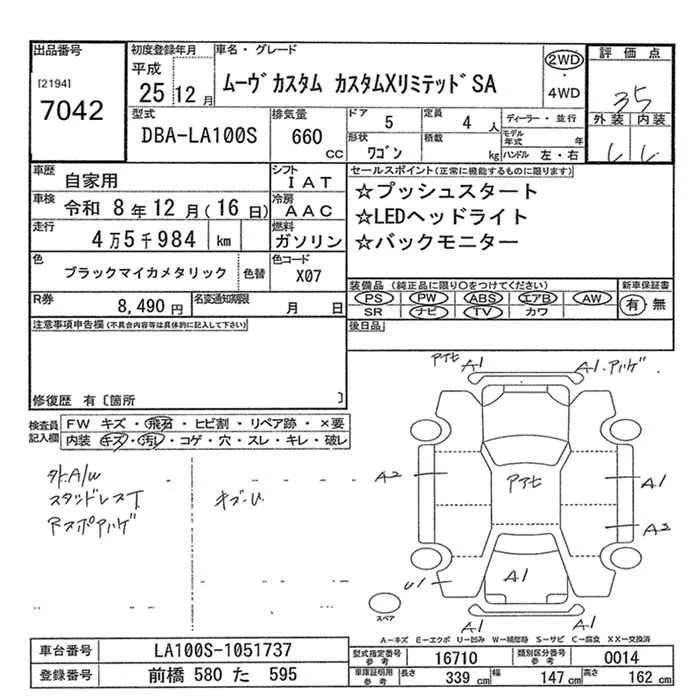 出品番号
[2194]
7042
初度登録年月
平成
25 12 月
車名・グレード
ムーヴ カスタム カスタムXリミテッド SA
2WD
・
4WD
評価点
35
外装 内装
型式
DBA-LA100S
排気量
660 CC
ドア 5
定員 4 人
形状 ワゴン
積載 kg
ディーラー・並行
モデル年式 年
ハンドル 左・右
車歴 自家用
シフト IAT
車検 令和 8年12月(16日)
冷房 AAC
走行 4万5千984 km
燃料 ガソリン
色 ブラックマイカメタリック 色替
色コード X07
R券 8,490円
名変通知期限 月 日
セールスポイント(正常に機能するものに限ります)
☆プッシュスタート
☆LEDヘッドライト
☆バックモニター
装備品(純正品に限り○をつけてください)
PS PW ABS エアB AW
SR ナビ TV カワ
新車保証書
有・無
後日品
注意事項申告欄(不具合内容等は具体的に記入して下さい)
修復歴 有〔箇所 〕
検査員記入欄
FW キズ・飛石・ヒビ割・リペア跡・×要
内装 キズ・汚レ・コゲ・穴・スレ・キレ・破レ
外A/W
スタッドレスT
キズ-U
アアセ
A1
A1
A2
アアセ
A1
A2
U1
A1
A1
A1
スペア
A－キズ E－エクボ U－凹み W－補修跡 S－サビ C－腐食 XX－交換済
車台番号 LA100S-1051737
登録番号 前橋 580 た 595
型式指定番号 参考 16710
類別区分番号 参考 0014
車庫証明用 参考
長さ 339 cm
幅 147 cm
高さ 162 cm